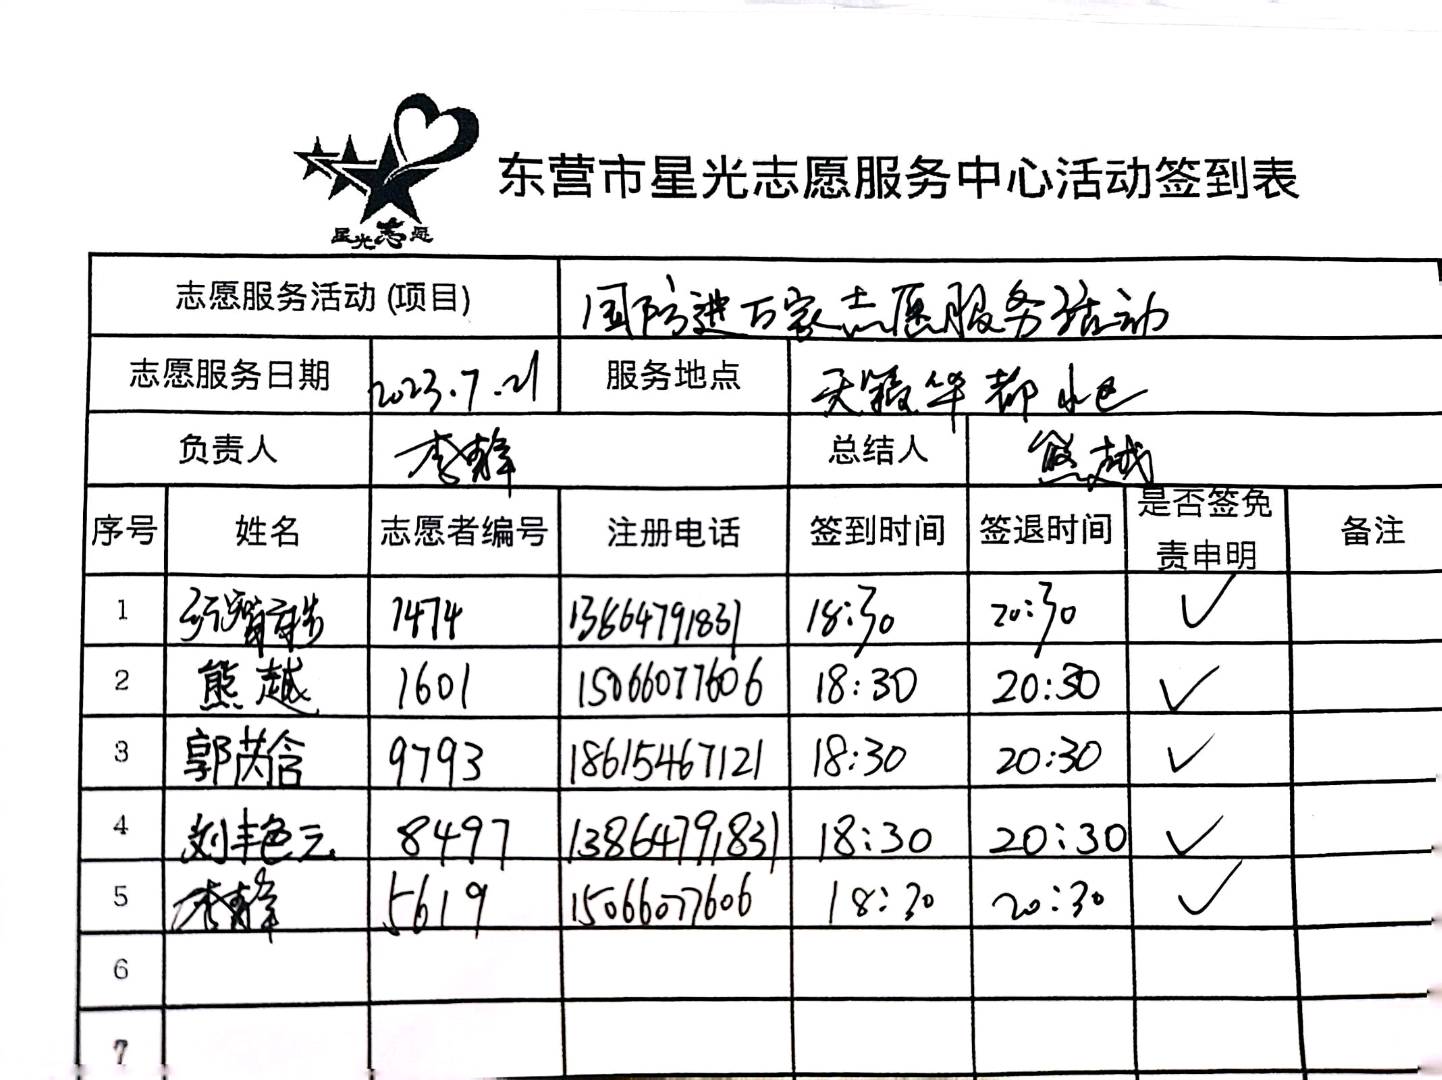 星光志愿
东营市星光志愿服务中心活动签到表
志愿服务活动 (项目) 国防进万家志愿服务活动
志愿服务日期 2023.7.21 服务地点 天颖华都水邑
负责人 李静 总结人 熊越
序号 姓名 志愿者编号 注册电话 签到时间 签退时间 是否签免责申明 备注
1 7474 13864791831 18:30 20:30 ✓
2 熊越 1601 15066077606 18:30 20:30 ✓
3 郭芮含 9793 18615467121 18:30 20:30 ✓
4 刘艳云 8497 13864791831 18:30 20:30 ✓
5 李静 5619 15066077606 18:30 20:30 ✓
6
7